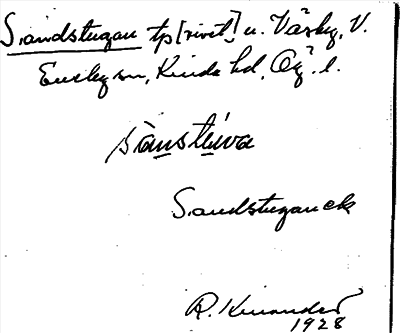 Sandstugan tp [rivet] u. Väsby, V.
Eneby sn, Kinda hd, Ög. l.
sànstúva
Sandstugan ck
R. Kinander
1928